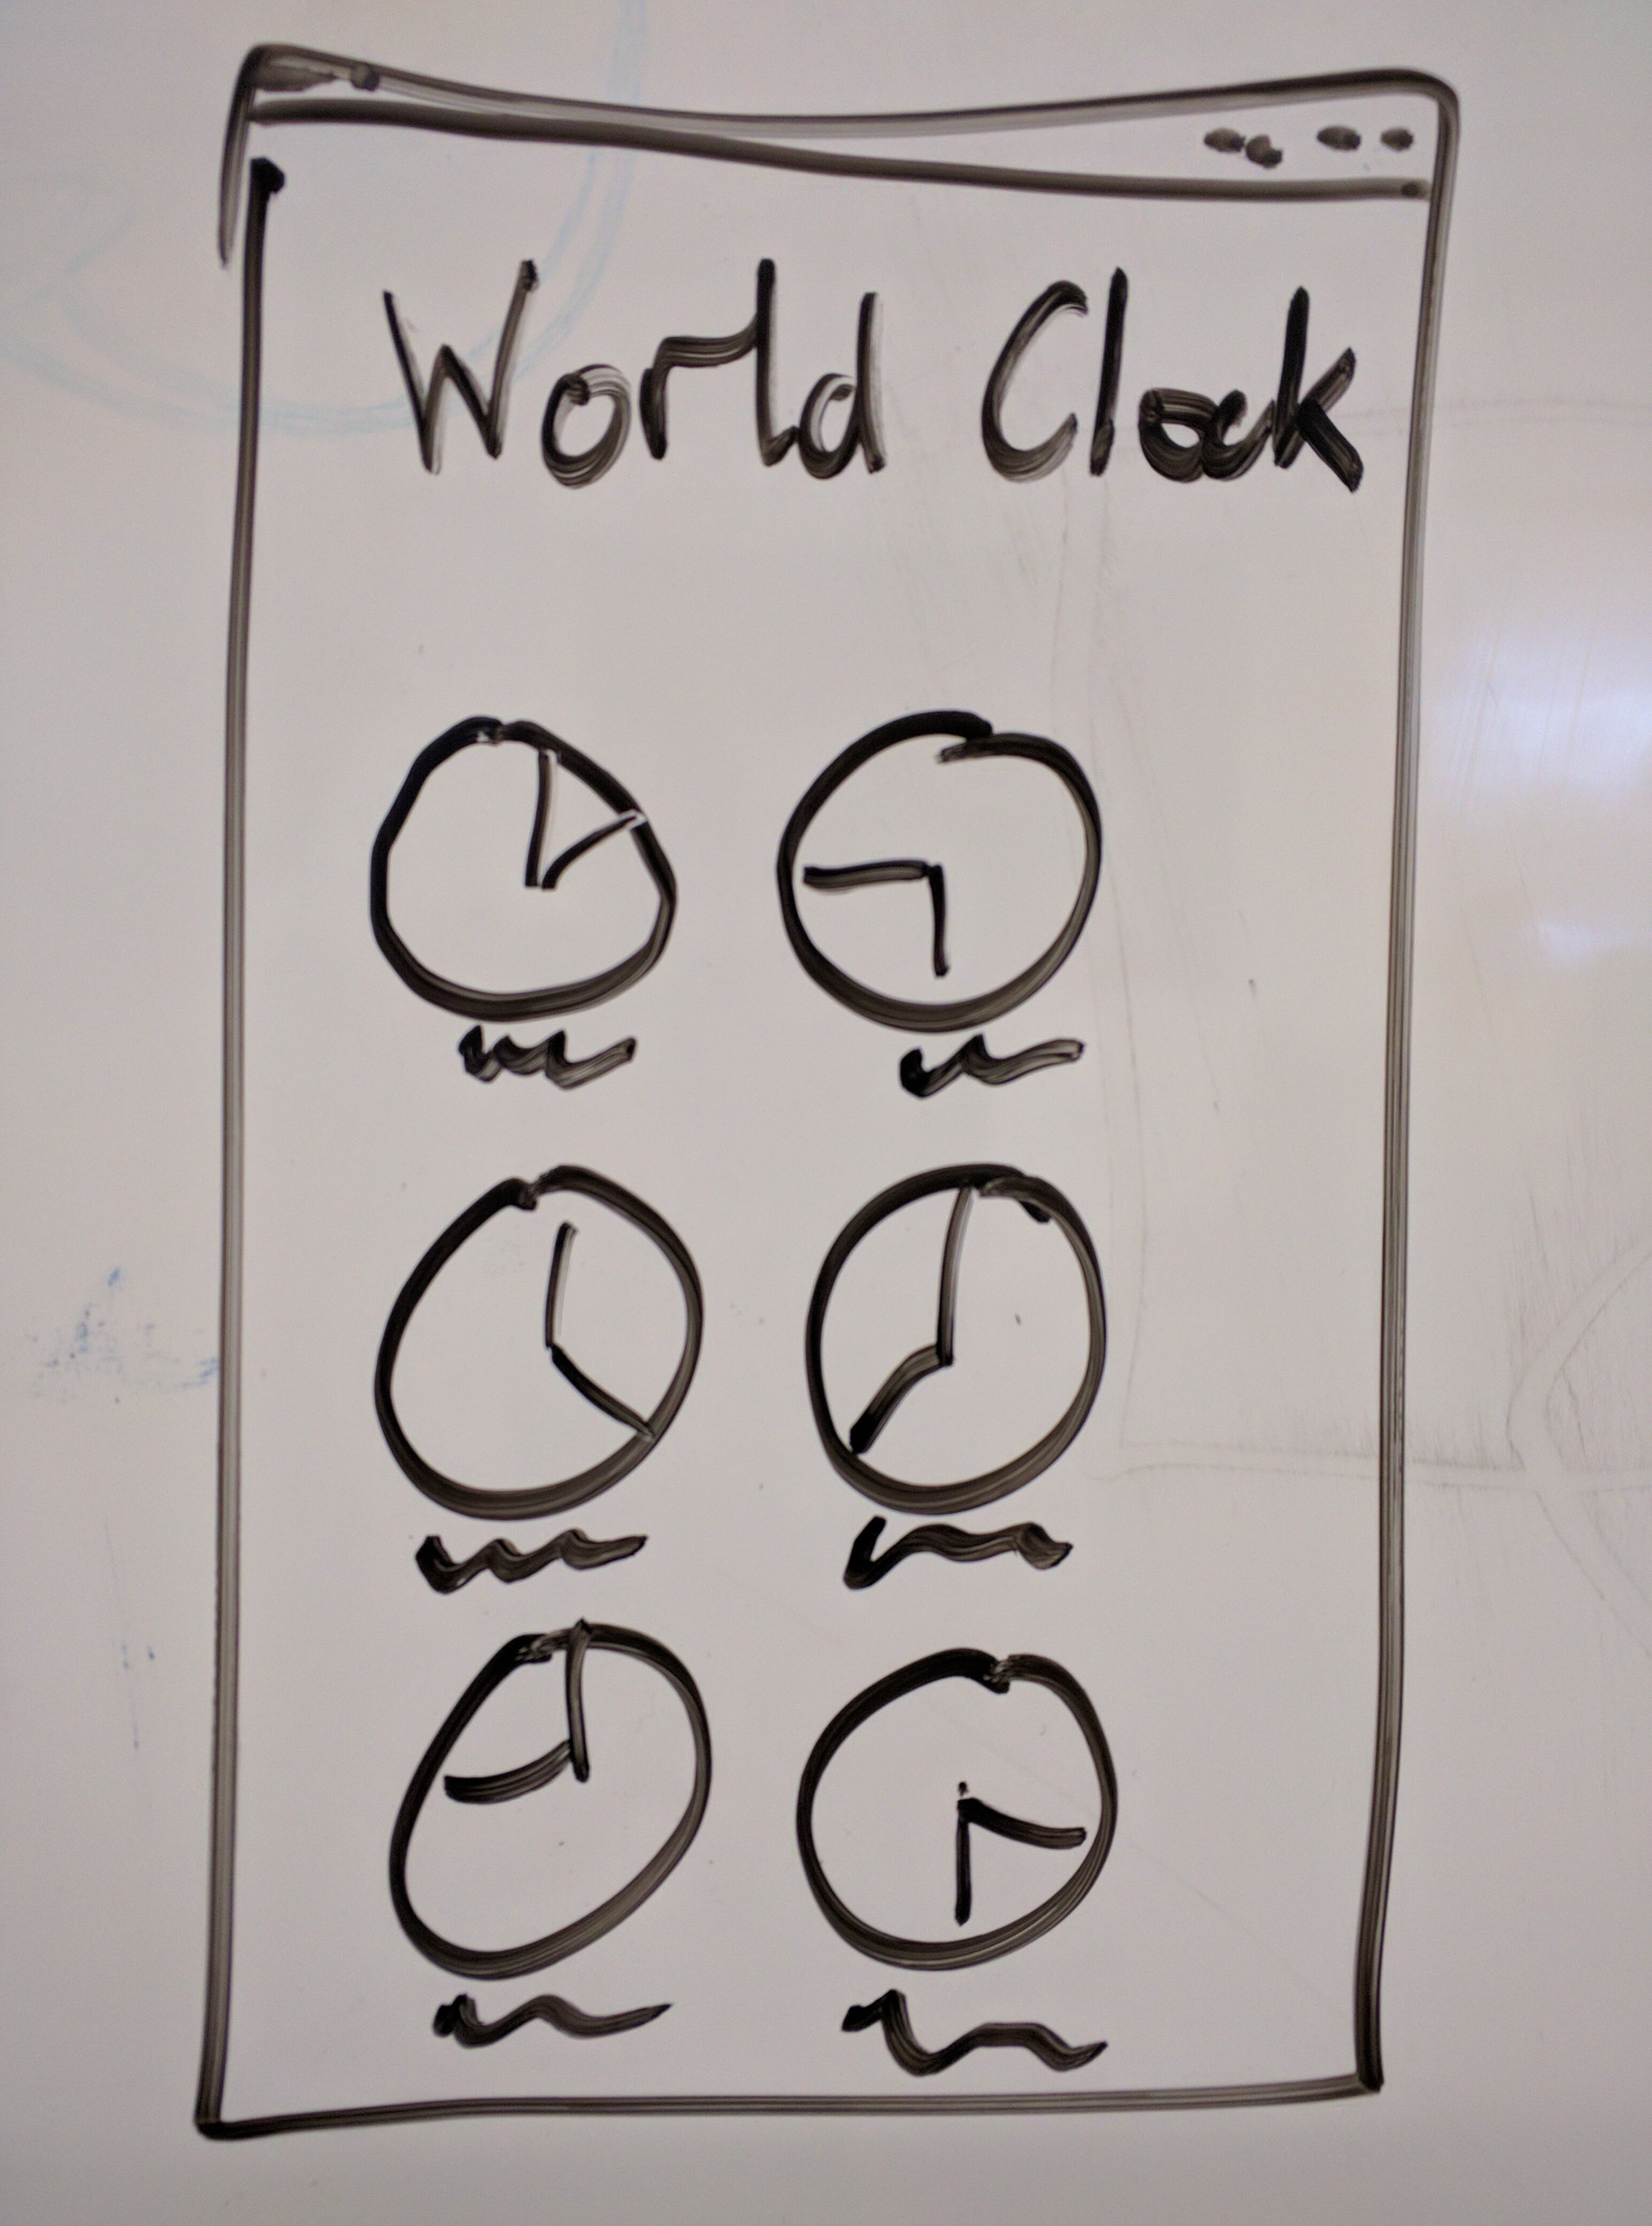 World Clock